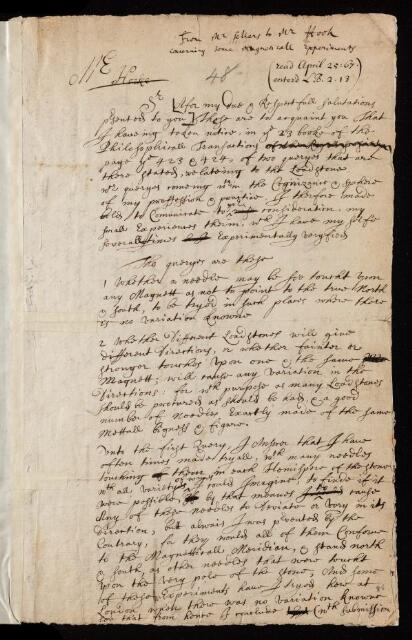 From Mr Sellers to Mr Hook
concerning some magneticall experiments
(read April 25: 67
(entered L.B. 2. 13)
Mr
Hooke
48
Sr After my Due & Respectfull salutations
presented to you These are to acquaint you That
I haveing taken notice, in ye 23 booke of the
Philosophicall Transactions
page ye 423 & 424, of two queryes that are
there stated, relateing to the Loadstone
wch queryes comeing wthin the Cognizance & sphere
of my profession & practice I therefore made
bold to Communicate to yor consideration, my
small Experiences therein, wch I have my selfe
severall times Experimentally veryfied
The queryes are these
1 Whether a needle may be soe toucht upon
any Magnett as not to point to the true North
& South, to be tryed in such places where there
is no variation knowne
2 Whether Different Loadstones will give
different Directions, or whether fainter or
stronger touches upon one & the same
Magnett, will cause any variation in the
Directions; for wch purpose as many Loadstones
should be procured as should be had, & a good
number of Needles, Exactly made of the same
Mettall bigness & figure.
Unto the first Query, I Answer that I have
often times made tryall, wth many needles
touching them in each Hemisphere of the stone
wth all varieties I could Imagine to finde if it
were possible, by that meanes to cause
Any of those needles to Deviate or Vary in its
direction; but alwais I was prevented by the
Contrary, for they would all of them Conforme
to the Magneticall Meridian, & stand north
& south, as other needles that were toucht
upon the very pole of the stone, And some
of these Experiments have I tryed here at
London when there was no variation knowne
soe that from hence I conclude (wth submission